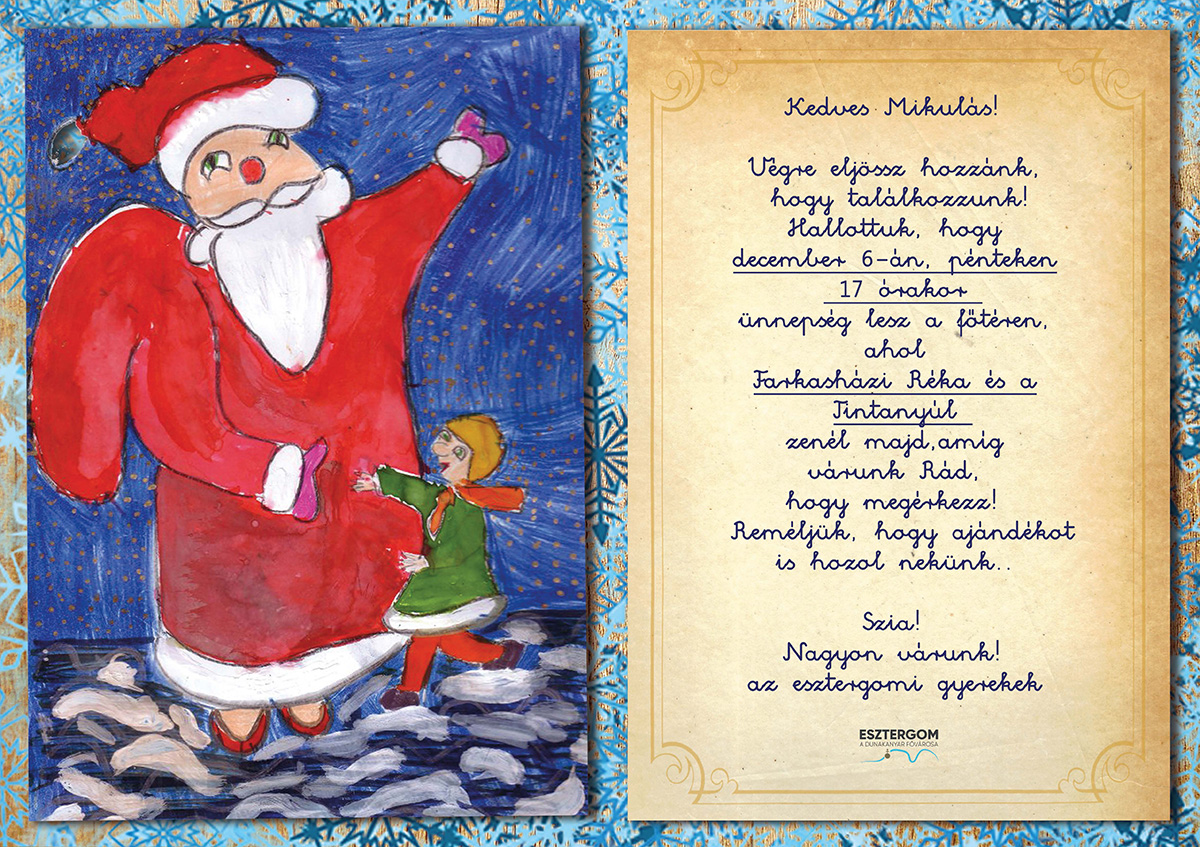 Kedves Mikulás!
Végre eljössz hozzánk,
hogy találkozzunk!
Hallottuk, hogy
december 6-án, pénteken
17 órakor
ünnepség lesz a főtéren,
ahol
Farkasházi Réka és a
Tintanyúl
zenél majd,amíg
várunk Rád,
hogy megérkezz!
Reméljük, hogy ajándékot
is hozol nekünk..
Szia!
Nagyon várunk!
az esztergomi gyerekek
ESZTERGOM
A DUNAKANYAR FŐVÁROSA